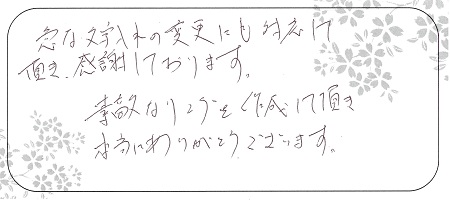 急な文字入れの変更にも対応して
頂き、感謝しております。
素敵なリングを作成して頂き
本当にありがとうございます。